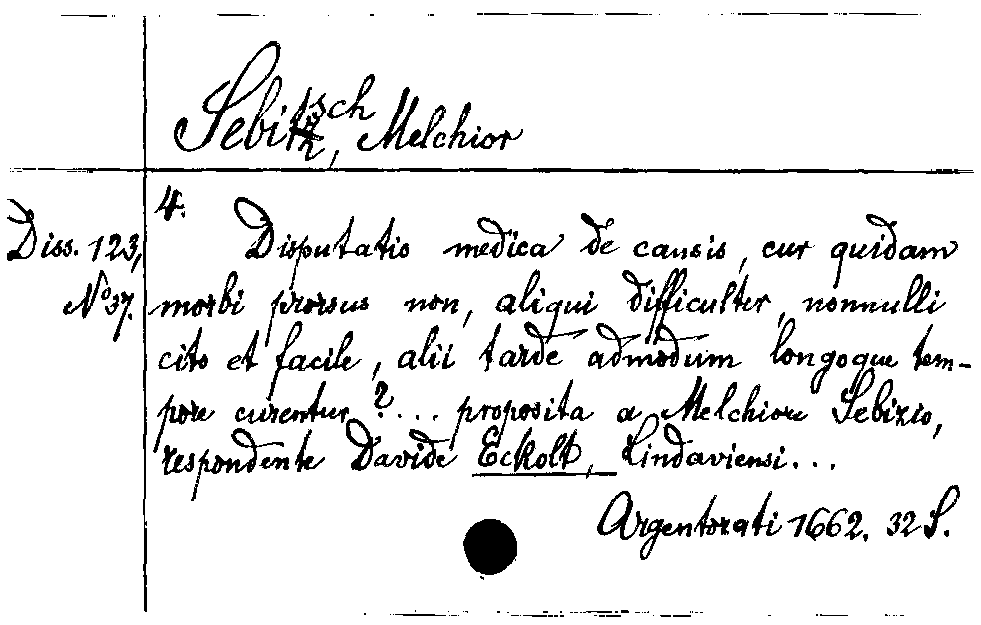 Sebitzsch, Melchior
4.
Diss. 123,
No 37.
Disputatio medica de causis, cur quidam
morbi prorsus non, aliqui difficulter, nonnulli
cito et facile, alii tarde admodum longoque tem-
pore curentur?... proposita a Melchiore Sebizio,
respondente Davide Eckolt, Lindaviensi...
Argentorati 1662. 32 S.